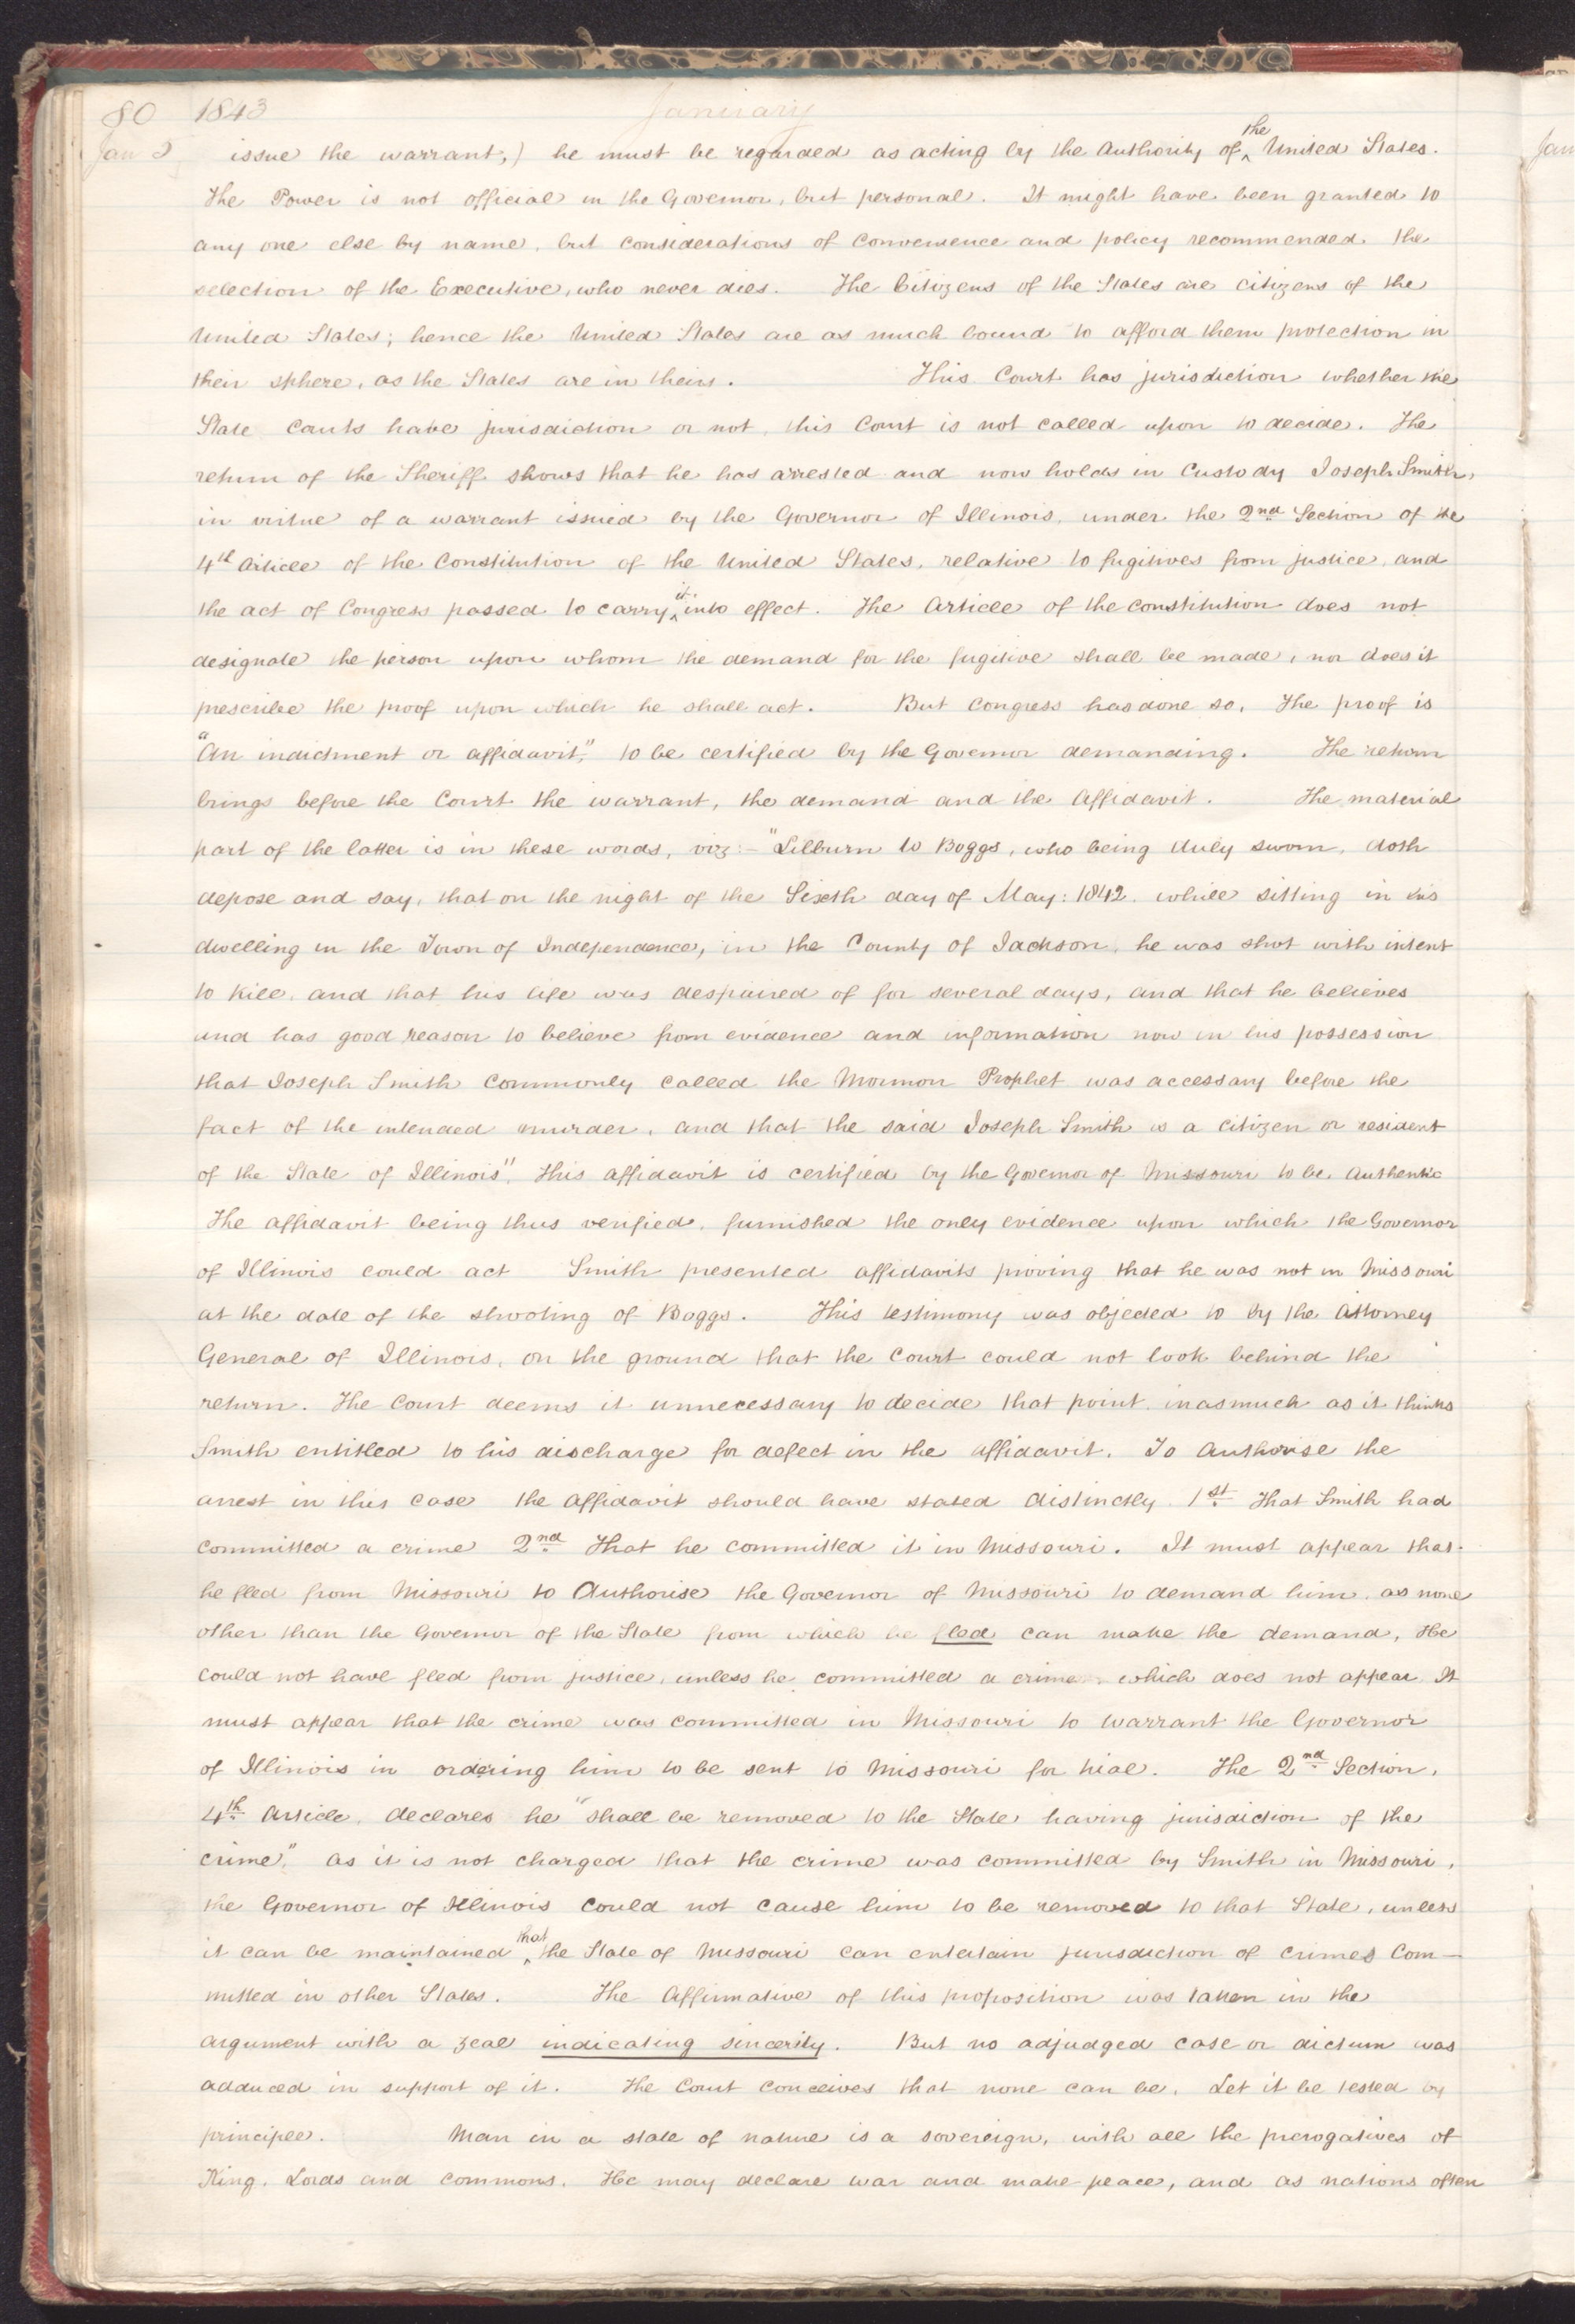 80 1843 January
Jan 5 issue the warrant,) he must be regarded as acting by the Authority of ^the United States.
The Power is not official in the Governor, but personal. It might have been granted to
any one else by name, but considerations of convenience and policy recommended the
selection of the Executive, who never dies. The Citizens of the States are citizens of the
United States; hence the United States are as much bound to afford them protection in
their sphere, as the States are in theirs. This Court has jurisdiction whether the
State Courts have jurisdiction or not, this Court is not called upon to decide. The
return of the Sheriff shows that he has arrested and now holds in Custody Joseph Smith,
in virtue of a warrant issued by the Governor of Illinois, under the 2nd Section of the
4th Article of the Constitution of the United States, relative to fugitives from justice, and
the act of Congress passed to carry ^it into effect. The Article of the constitution does not
designate the person upon whom the demand for the fugitive shall be made, nor does it
prescribe the proof upon which he shall act. But Congress has done so. The proof is
"An indictment or affidavit," to be certified by the Governor demanding. The return
brings before the Court the warrant, the demand and the Affidavit. The material
part of the latter is in these words, viz:— "Lilburn W Boggs, who being duly sworn, doth
depose and say, that on the night of the Sixth day of May: 1842. while sitting in his
dwelling in the Town of Independence, in the County of Jackson, he was shot with intent
to kill, and that his life was despaired of for several days, and that he believes
and has good reason to believe from evidence and information now in his possession
that Joseph Smith Commonly called the Mormon Prophet was accessary before the
fact of the intended murder, and that the said Joseph Smith is a citizen or resident
of the State of Illinois". This affidavit is certified by the Governor of Missouri to be Authentic
The affidavit being thus verified, furnished the only evidence upon which the Governor
of Illinois could act Smith presented affidavits proving that he was not in Missouri
at the date of the shooting of Boggs. This testimony was objected to by the Attorney
General of Illinois, on the ground that the Court could not look behind the
return. The Court deems it unnecessary to decide that point, inasmuch as it thinks
Smith entitled to his discharge for defect in the affidavit. To Authorise the
arrest in this case the affidavit should have stated distinctly 1st That Smith had
committed a crime 2nd That he committed it in Missouri. It must appear that
he fled from Missouri to Authorise the Governor of Missouri to demand him, as none
other than the Governor of the State from which he fled can make the demand, He
could not have fled from justice, unless he committed a crime, which does not appear. It
must appear that the crime was committed in Missouri to warrant the Governor
of Illinois in ordering him to be sent to Missouri for trial. The 2nd Section,
4th Article, declares he "shall be removed to the State having jurisdiction of the
crime," as it is not charged that the crime was committed by Smith in Missouri,
the Governor of Illinois could not cause him to be removed to that State, unless
it can be maintained ^that the State of Missouri can entertain jurisdiction of crimes Com-
mitted in other States. The Affirmative of this proposition was taken in the
argument with a zeal indicating sincerity. But no adjudged case or dictum was
adduced in support of it. The Court conceives that none can be. Let it be tested by
principle. Man in a state of nature is a sovereign, with all the prerogatives of
King, Lords and Commons. He may declare war and make peace, and as nations often
Jan